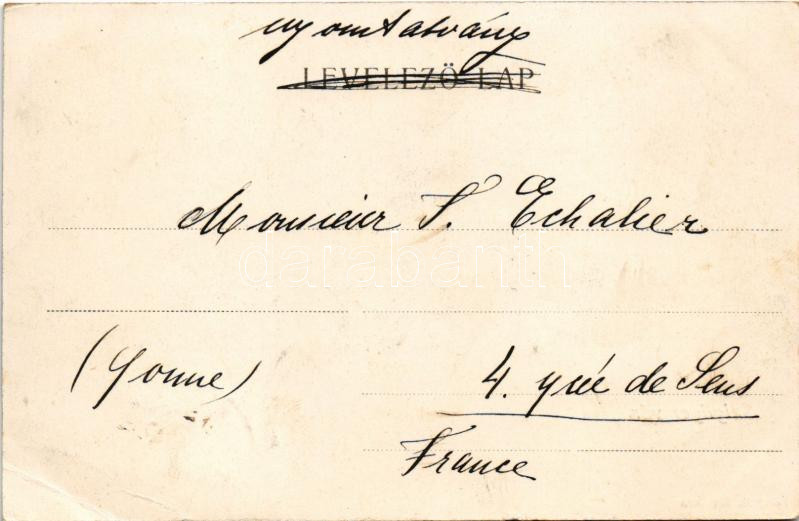 nyomtatvány
LEVELEZŐ-LAP
Monsieur S. Echalier
darabanth
(Yonne)
4. rue de Sens
France